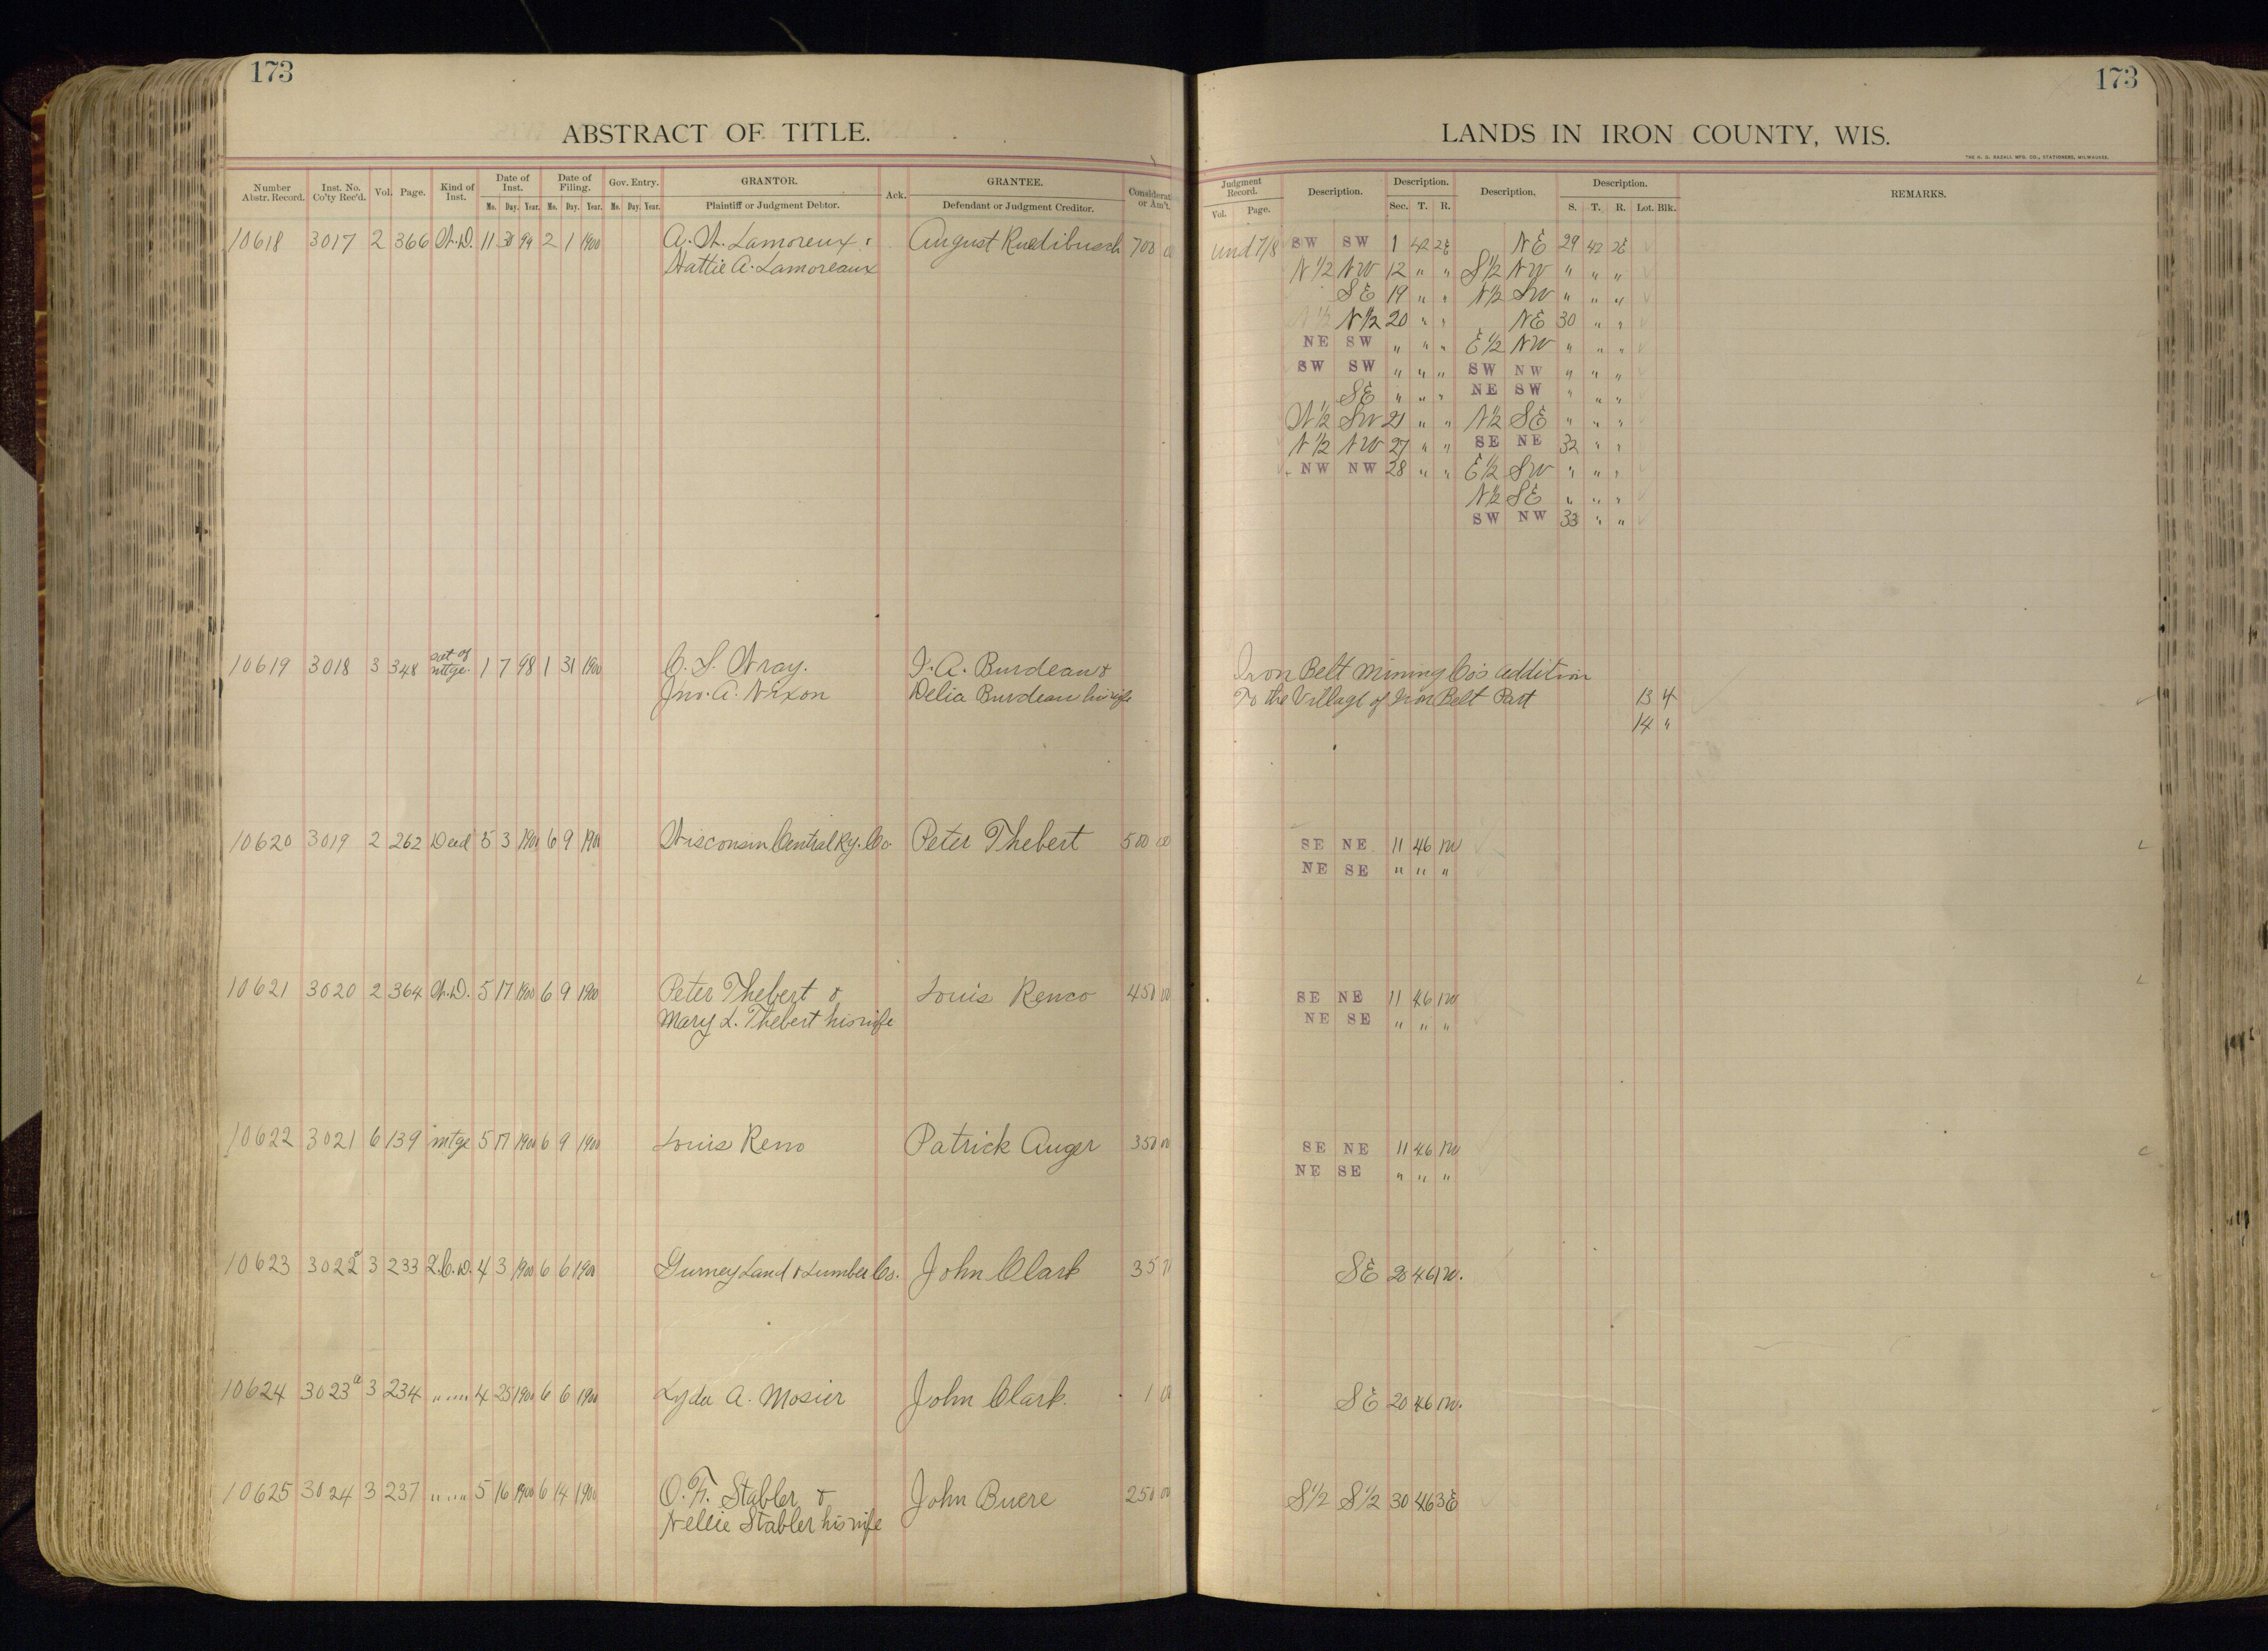 173
ABSTRACT OF TITLE.
Number Abstr. Record. Inst. No. Co'ty Rec'd. Vol. Page. Kind of Inst. Date of Inst. Mo. Day. Year. Date of Filing. Mo. Day. Year. Gov. Entry. Mo. Day. Year. GRANTOR. Plaintiff or Judgment Debtor. Ack. GRANTEE. Defendant or Judgment Creditor. Considerat or Am't.
10618 3017 2 366 W.D. 11 30 99 2 1 1900 A. W. Lamoreux & August Ruedibusch 700 00
Hattie A. Lamoreaux
10619 3018 3 348 sat of mtge. 1 7 98 1 31 1900 C. S. Wray. F. A. Burdeau &
Jno. A. Nixon Delia Burdeau his wife
10620 3019 2 262 Deed 5 3 1900 6 9 1900 Wisconsin Central Ry. Co. Peter Thebert 500 00
10621 3020 2 364 W.D. 5 17 1900 6 9 1900 Peter Thebert & Louis Renco 450 00
Mary L. Thebert his wife
10622 3021 6 139 mtge 5 17 1900 6 9 1900 Louis Reno Patrick Auger 350 00
10623 3022 3 233 2.C.D. 4 3 1900 6 6 1900 Gurney Land & Lumber Co. John Clark 35
10624 3023a 3 234 " " " 4 25 1900 6 6 1900 Lyda A. Mosier John Clark. 1 00
10625 3024 3 237 " " " 5 16 1900 6 14 1900 O. F. Stabler & John Buere 250 00
Nellie Stabler his wife
173
LANDS IN IRON COUNTY, WIS.
THE H. G. RAZALL MFG. CO., STATIONERS, MILWAUKEE.
Judgment Record. Vol. Page. Description. Description. Sec. T. R. Description. Description. S. T. R. Lot. Blk. REMARKS.
und 7/8 SW SW 1 42 2E NE 29 42 2E
N 1/2 NW 12 " " S 1/2 NW " " "
SE 19 " " N 1/2 SW " " "
N 1/2 N 1/2 20 " " NE 30 " "
NE SW " " " E 1/2 NW " " "
SW SW " " " SW NW " " "
SE " " " NE SW " " "
N 1/2 SW 21 " " N 1/2 SE " " "
N 1/2 NW 27 " " SE NE 32 " "
NW NW 28 " " E 1/2 SW " " "
N 1/2 SE " " "
SW NW 33 " "
Iron Belt Mining Co's addition
To the Village of Iron Belt Part 13 4
14 "
SE NE 11 46 1W
NE SE " " "
SE NE 11 46 1W
NE SE " " "
SE NE 11 46 1W
NE SE " " "
SE 20 46 1W.
SE 20 46 1W.
S 1/2 S 1/2 30 46 3E